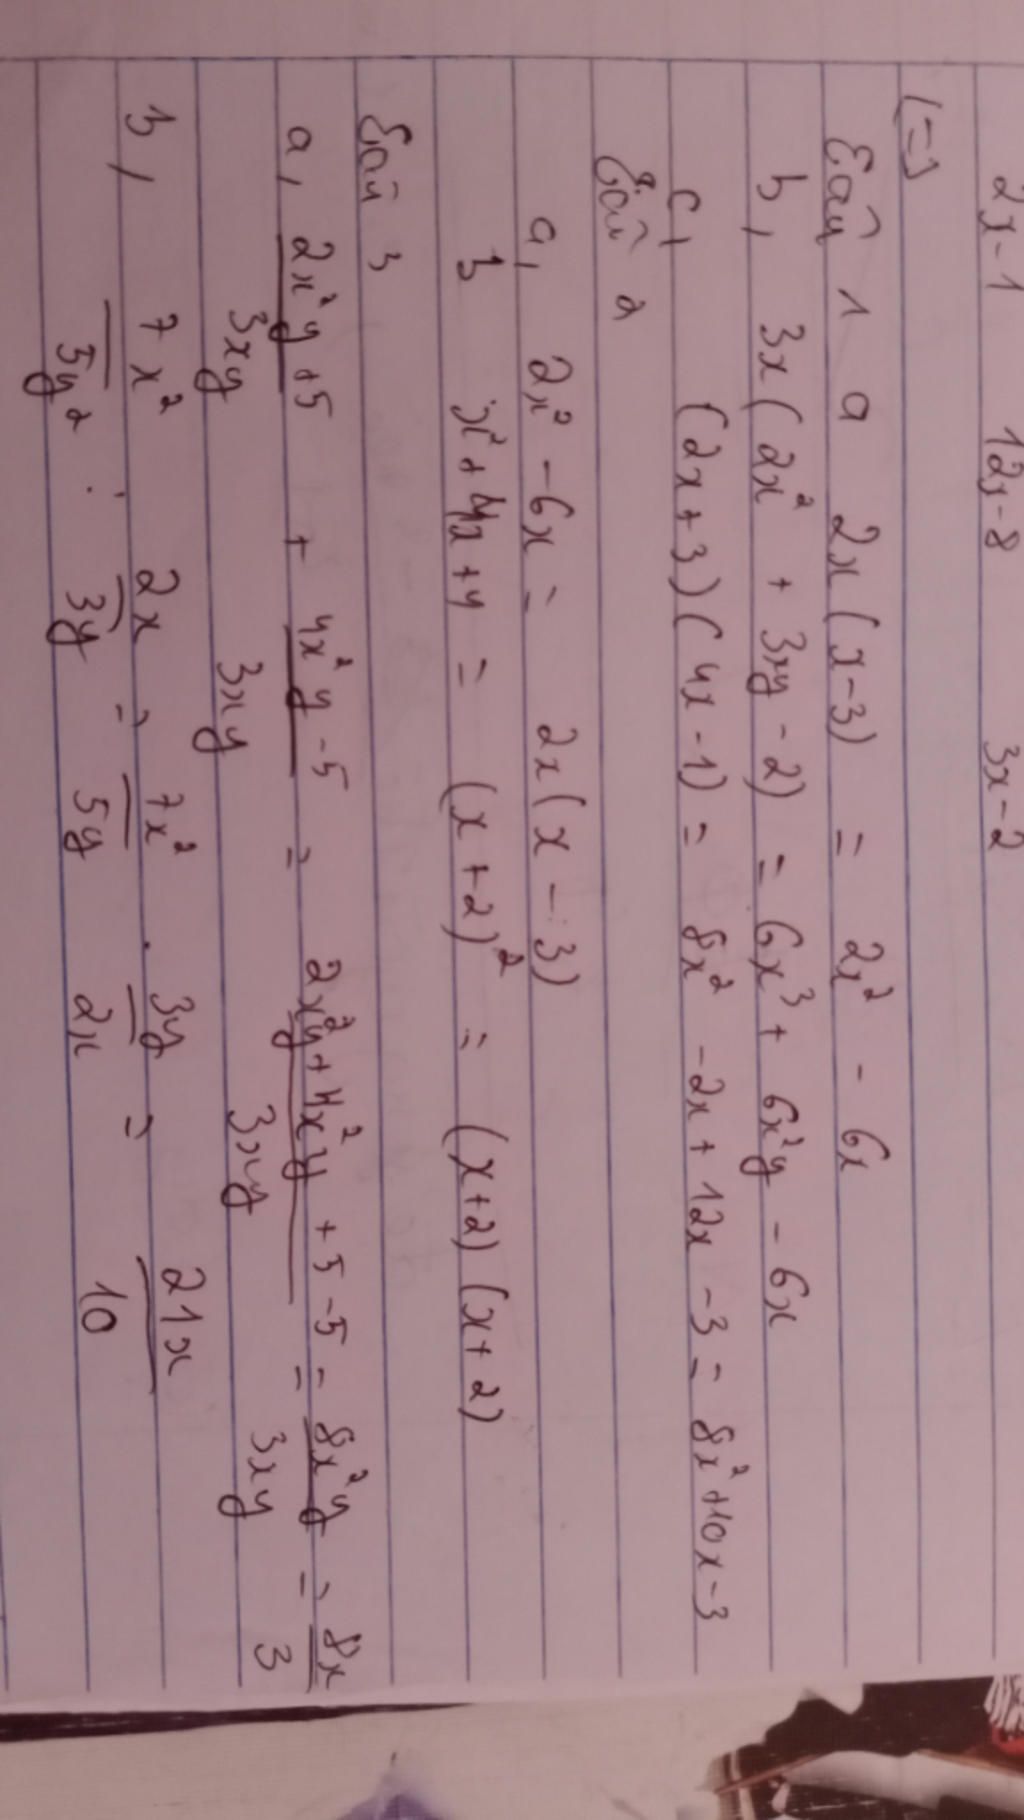 2x-1 12x-8 3x-2
(=)
Câu 1 a 2x(x-3) = 2x² - 6x
b, 3x(2x² + 3xy - 2) = 6x³ + 6x²y - 6x
c, (2x+3)(4x-1) = 8x² -2x + 12x -3 = 8x²+10x-3
Câu 2
a, 2x² -6x = 2x(x-3)
b x²+4x+4 = (x+2)² = (x+2)(x+2)
Câu 3
a, 2x²y+5/3xy + 4x²y-5/3xy = 2x²y+4x²y+5-5/3xy = 8x²y/3xy = 8x/3
b, 7x²/5y² : 2x/3y = 7x²/5y . 3y/2x = 21x/10